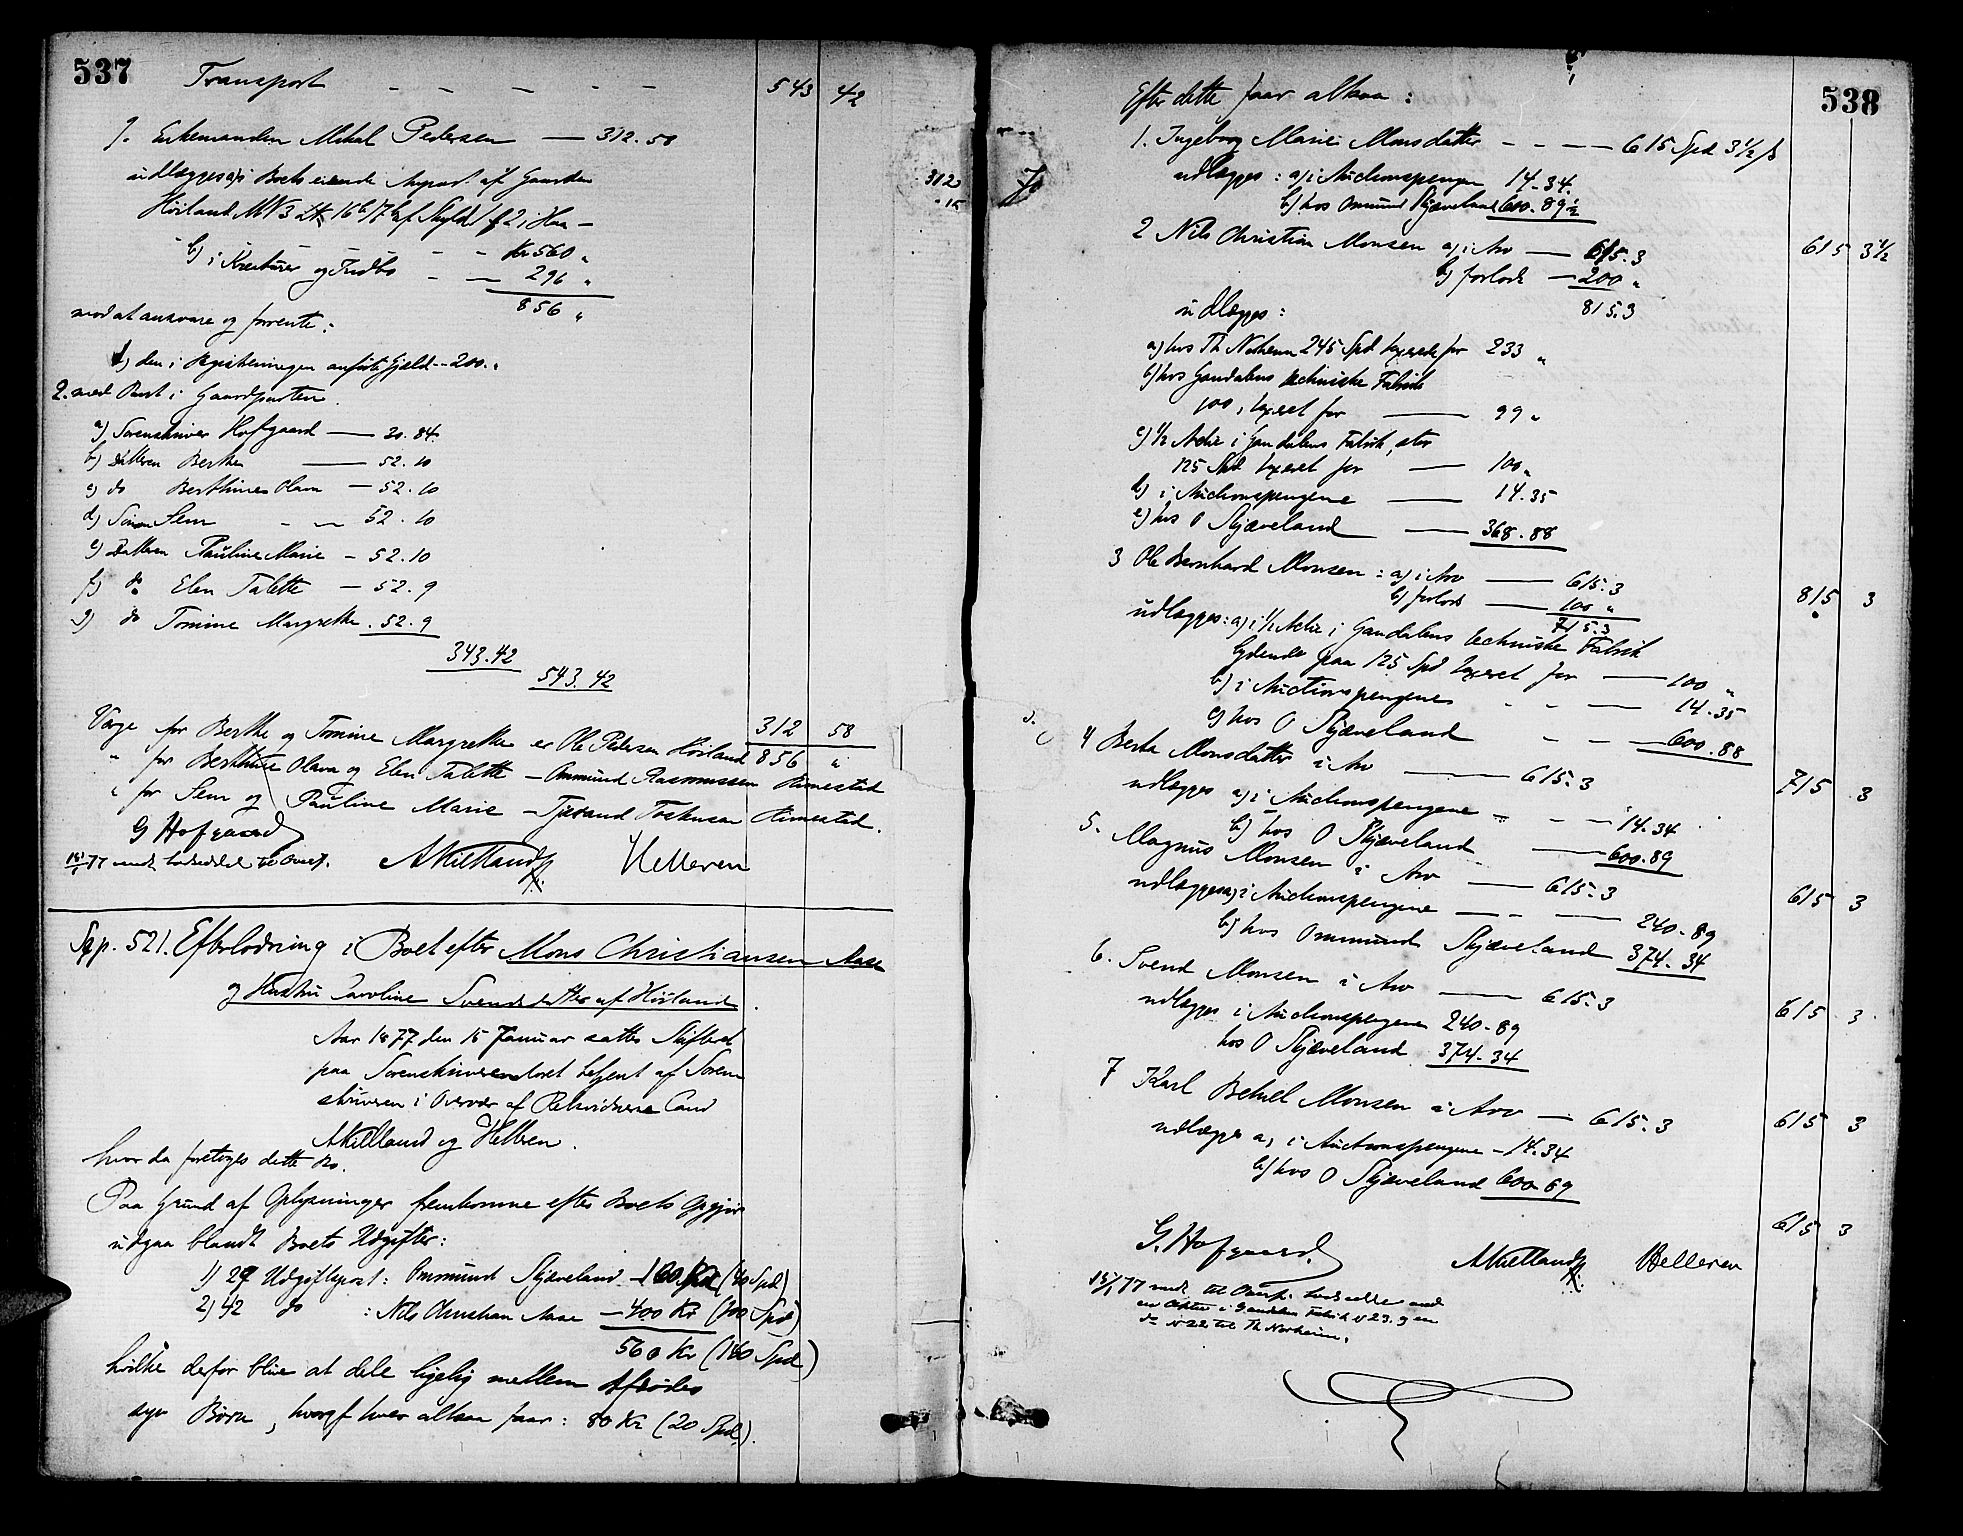 537
Transport - - - - - 543 42
7. Enkemanden Mikal Pedersen — 312.58
udlægges a) i Boets eiende Anpart af Gaarden
Hörland MN 3 16 b/7 af Skyld 1 f 2 i Haa -
b) i Kreaturer og Indbo - - Kr 560 "
296 "
856 "
mod at ansvare og forrente:
1) den i Registeringen anførte Gjæld -- 200. "
2. med Pant i Gaardparten
a) Sorenskriver Hofgaard — 30.84
b) Datteren Berthe — 52.10
c) do Berthine Olava — 52.10
d) Sönnen Sem - - 52.10
e) Datteren Pauline Marie - 52.10
f) do Elen Talette — 52.9
g) do Tomine Margrethe . 52.9
343.42
543.42
312 58
Værge for Berthe og Tomine Margrethe er Ole Pedersen Hörland 856 "
" for Berthine Olava og Elen Talette - Ommund Rasmussen Rimestad
" for Sem og Pauline Marie - Tjøran Rimestad.
G Hofgaard AKielland Helleren
15/1 77 medd. Lodseddel til Overf.
Sgp. 521. Efterlodning i Boet efter Mons Christiansen Aase
og Hustru Caroline Svendsdatter af Hörland.
Aar 1877 den 15 Januar sattes Skifteret
paa Sorenskriverkontoret betjent af Soren
skriveren i Overvær af Retsvidnerne Cand
AKielland og Helleren.
hvor da foretoges dette Bo.
Paa Grund af Oplysninger fremkomne efter Boets Opgjør
udgaa blandt Boets Udgifter:
1) 29 Udgiftspost: Ommund Skjæveland - 160 Kr (40 Spd)
2) 42 do : Nils Christian Aase — 400 Kr (100 Spd)
560 Kr (140 Spd)
hvilke derfor blive at dele ligelig mellem Afdødes
syv Børn, hvoraf hver altsaa faar: 80 Kr (20 Spd).
312
538
Efter dette faar altsaa:
1. Ingeborg Marie Monsdatter - - - — 615 Spd 3 1/2 ß
udlægges: a) i Auctionspengene 14.34.
b) hos Ommund Skjæveland 600.89 1/2
615 3 1/2
2 Nils Christian Monsen a) i Arv — 615.3
b) forlods — 200 "
815.3
udlægges:
a) hos Th Norheim 245 Spd taxeret for 233 "
b) hos Gandalens techniske Fabrik
100, taxeret for — 99 "
c) 1/2 Actie i Gandalens Fabrik, stor
125 Spd taxeret for — 100 "
d) i Auctionspengene — 14.35
e) hos O Skjæveland — 368.88
815 3
3 Ole Bernhard Monsen: a) i Arv — 615.3
b) forlods — 100 "
715.3
udlægges: a) i 1/2 Actie i Gandalens techniske Fabrik
lydende paa 125 Spd taxeret for — 100 "
b) i Auctionspengene - - — 14.35
c) hos O Skjæveland - - — 600.88
715 3
4 Berta Monsdatter i Arv — 615.3
udlægges a) i Auctionspengene - - — 14.34
b) hos O Skjæveland — 600.89
615 3
5. Magnus Monsen i Arv — 615.3
udlægges a) i Auctionspengene — - — 240.89
b) hos Ommund Skjæveland 374.34
615 3
6. Svend Monsen i Arv — 615.3
udlægges i Auctionspengene 240.89
hos O Skjæveland 374.34
615 3
7 Karl Betuel Monsen i Arv — 615.3
udlægges a) i Auctionspengene — 14.34
b) hos O Skjæveland 600.69
615 3
G. Hofgaard AKielland Helleren
15/1 77 medd. til Overf. Lodsedler med
en Aktie i Gandalens Fabrik N 23. og en
do N 22 til Th Norheim.